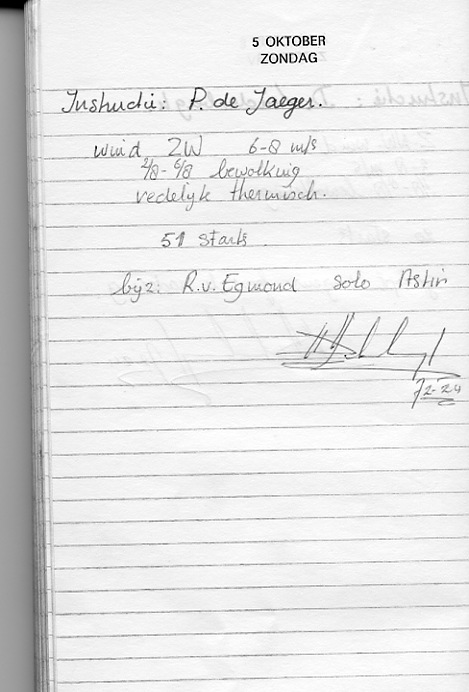 5 OKTOBER
ZONDAG
Instructie: P. de Jaeger.
wind ZW 6-8 m/s
2/8 - 6/8 bewolking
redelyk thermisch.
51 starts.
byz: R.v. Egmond solo Astir